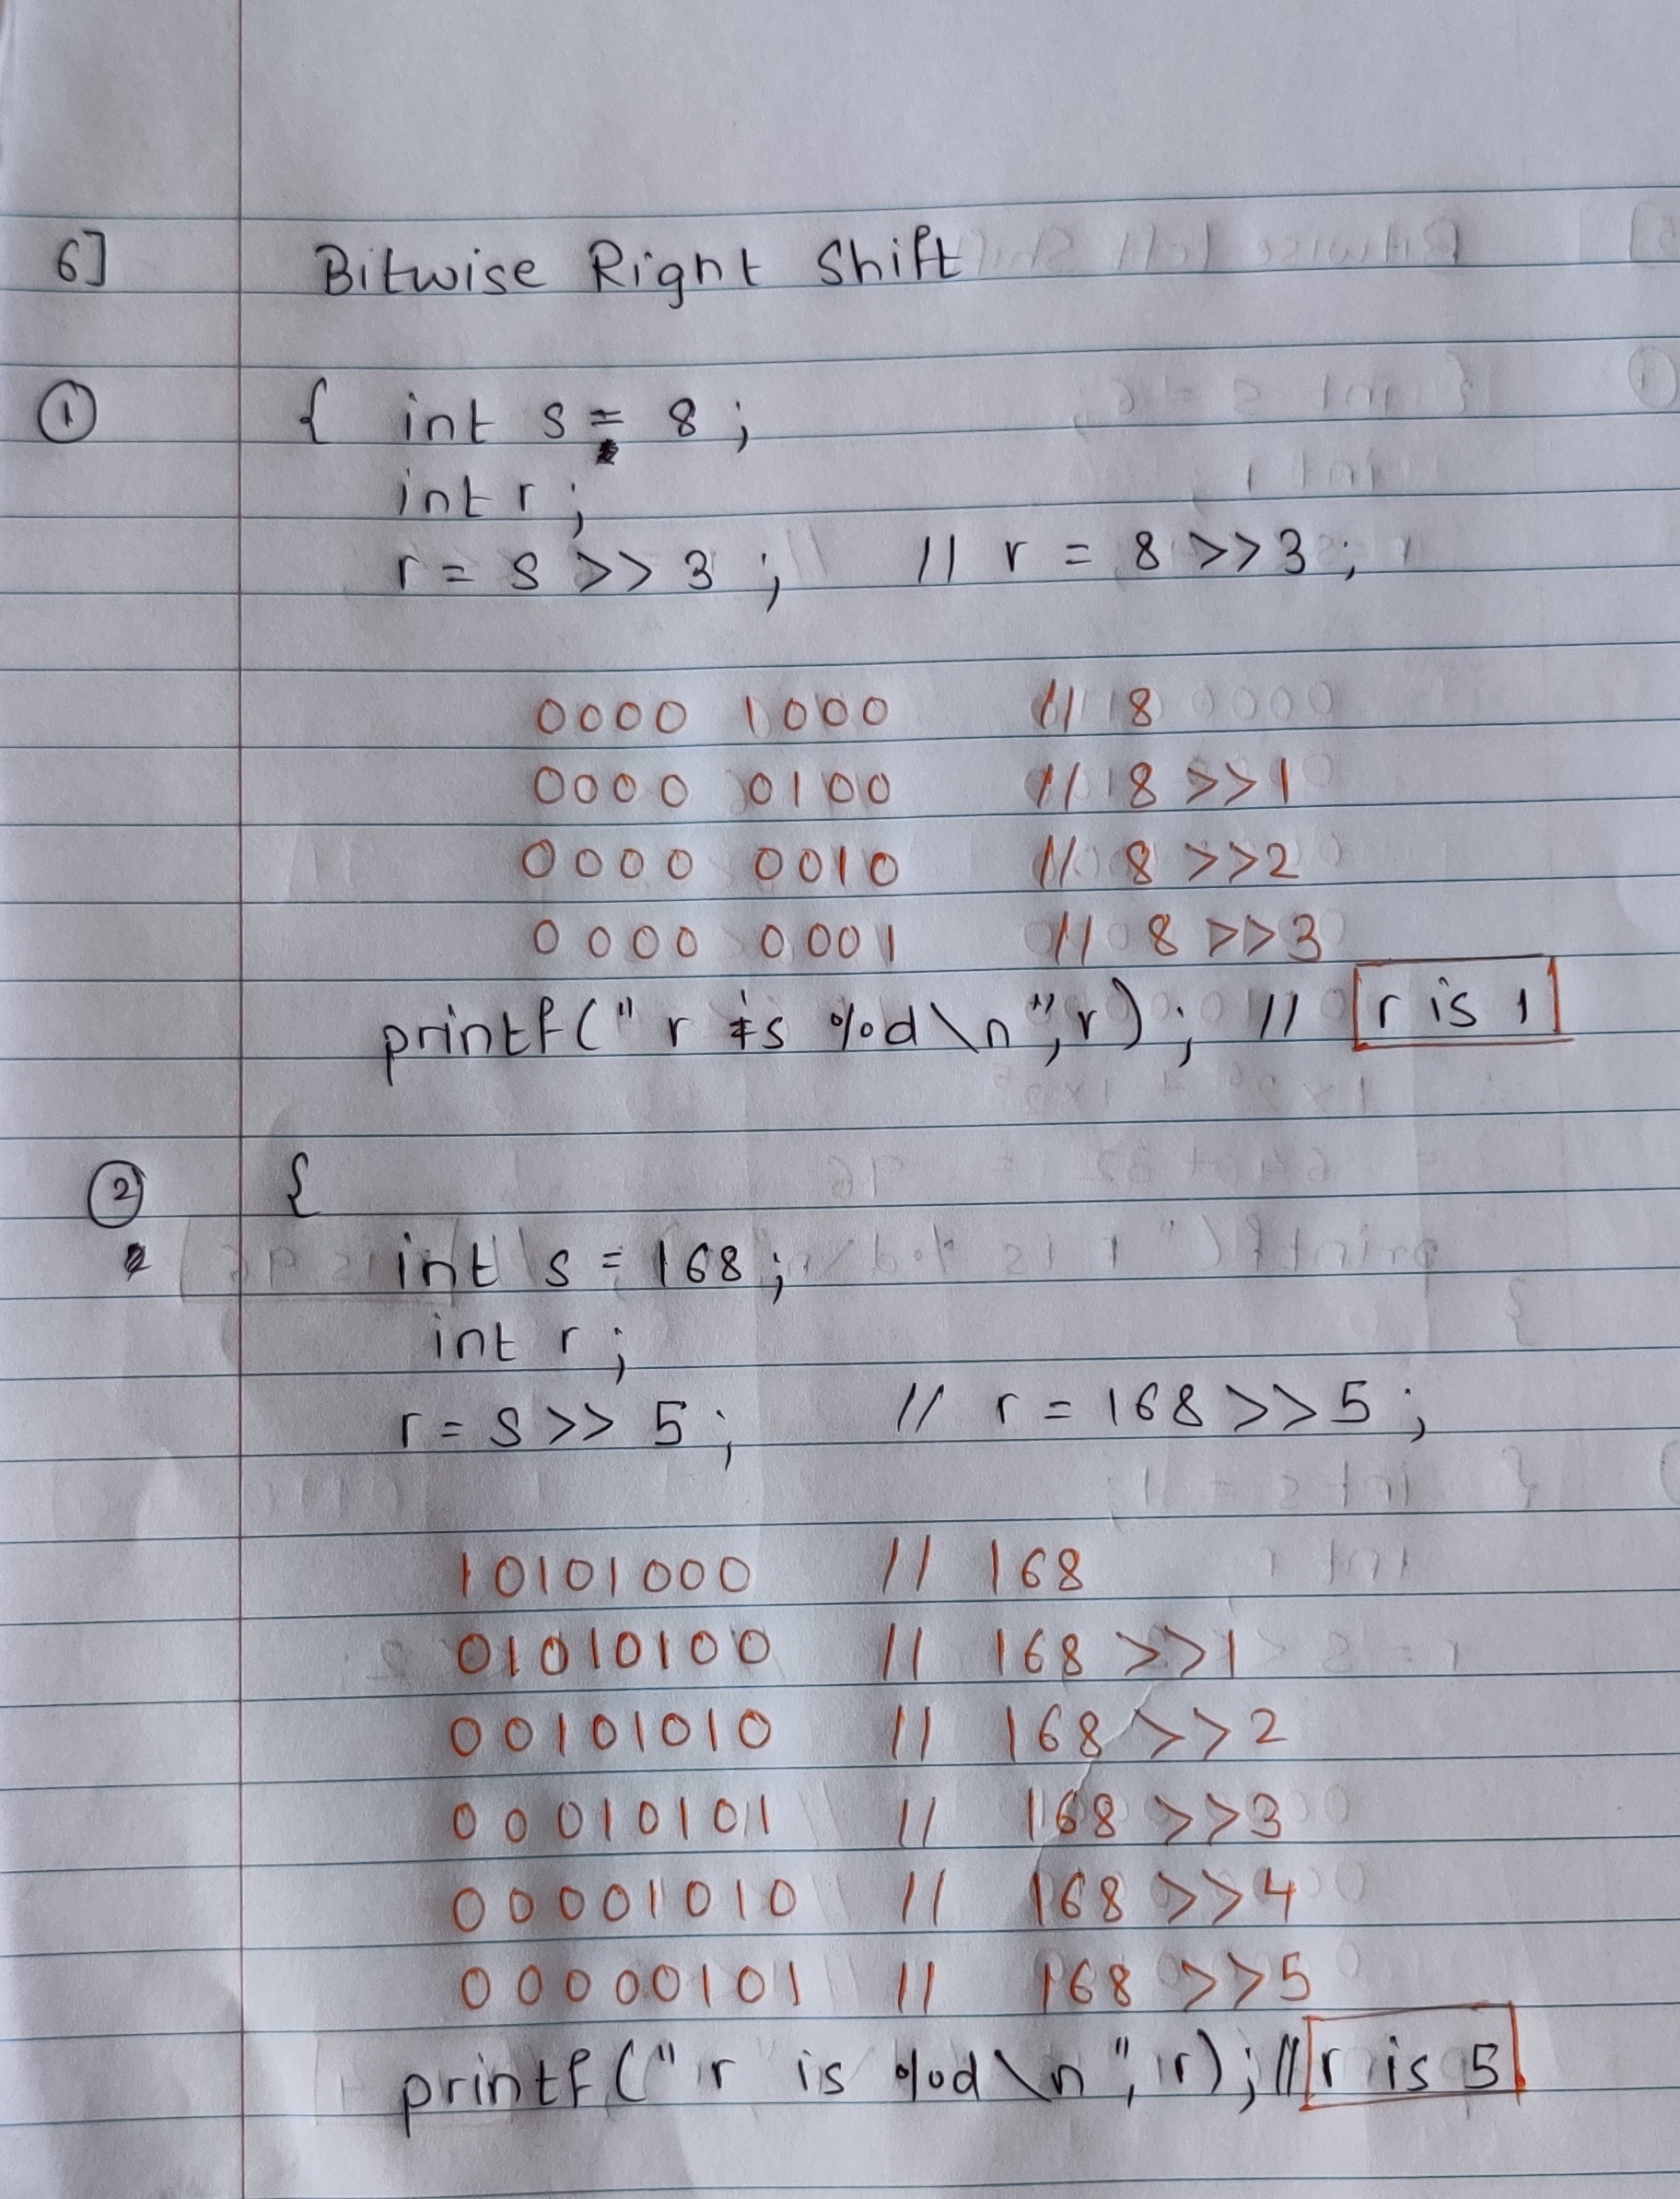 6] Bitwise Right Shift
① { int s = 8 ;
int r ;
r = s >> 3 ; // r = 8 >> 3 ;
0000 1000 // 8
0000 0100 // 8 >>1
0000 0010 // 8 >>2
0000 0001 // 8 >>3
printf(" r is %d\n",r) ; // r is 1
② {
int s = 168 ;
int r ;
r = s >> 5 ; // r = 168 >> 5 ;
10101000 // 168
01010100 // 168 >>1
00101010 // 168 >>2
00010101 // 168 >>3
00001010 // 168 >>4
00000101 // 168 >>5
printf (" r is %d \n ", r) ; // r is 5